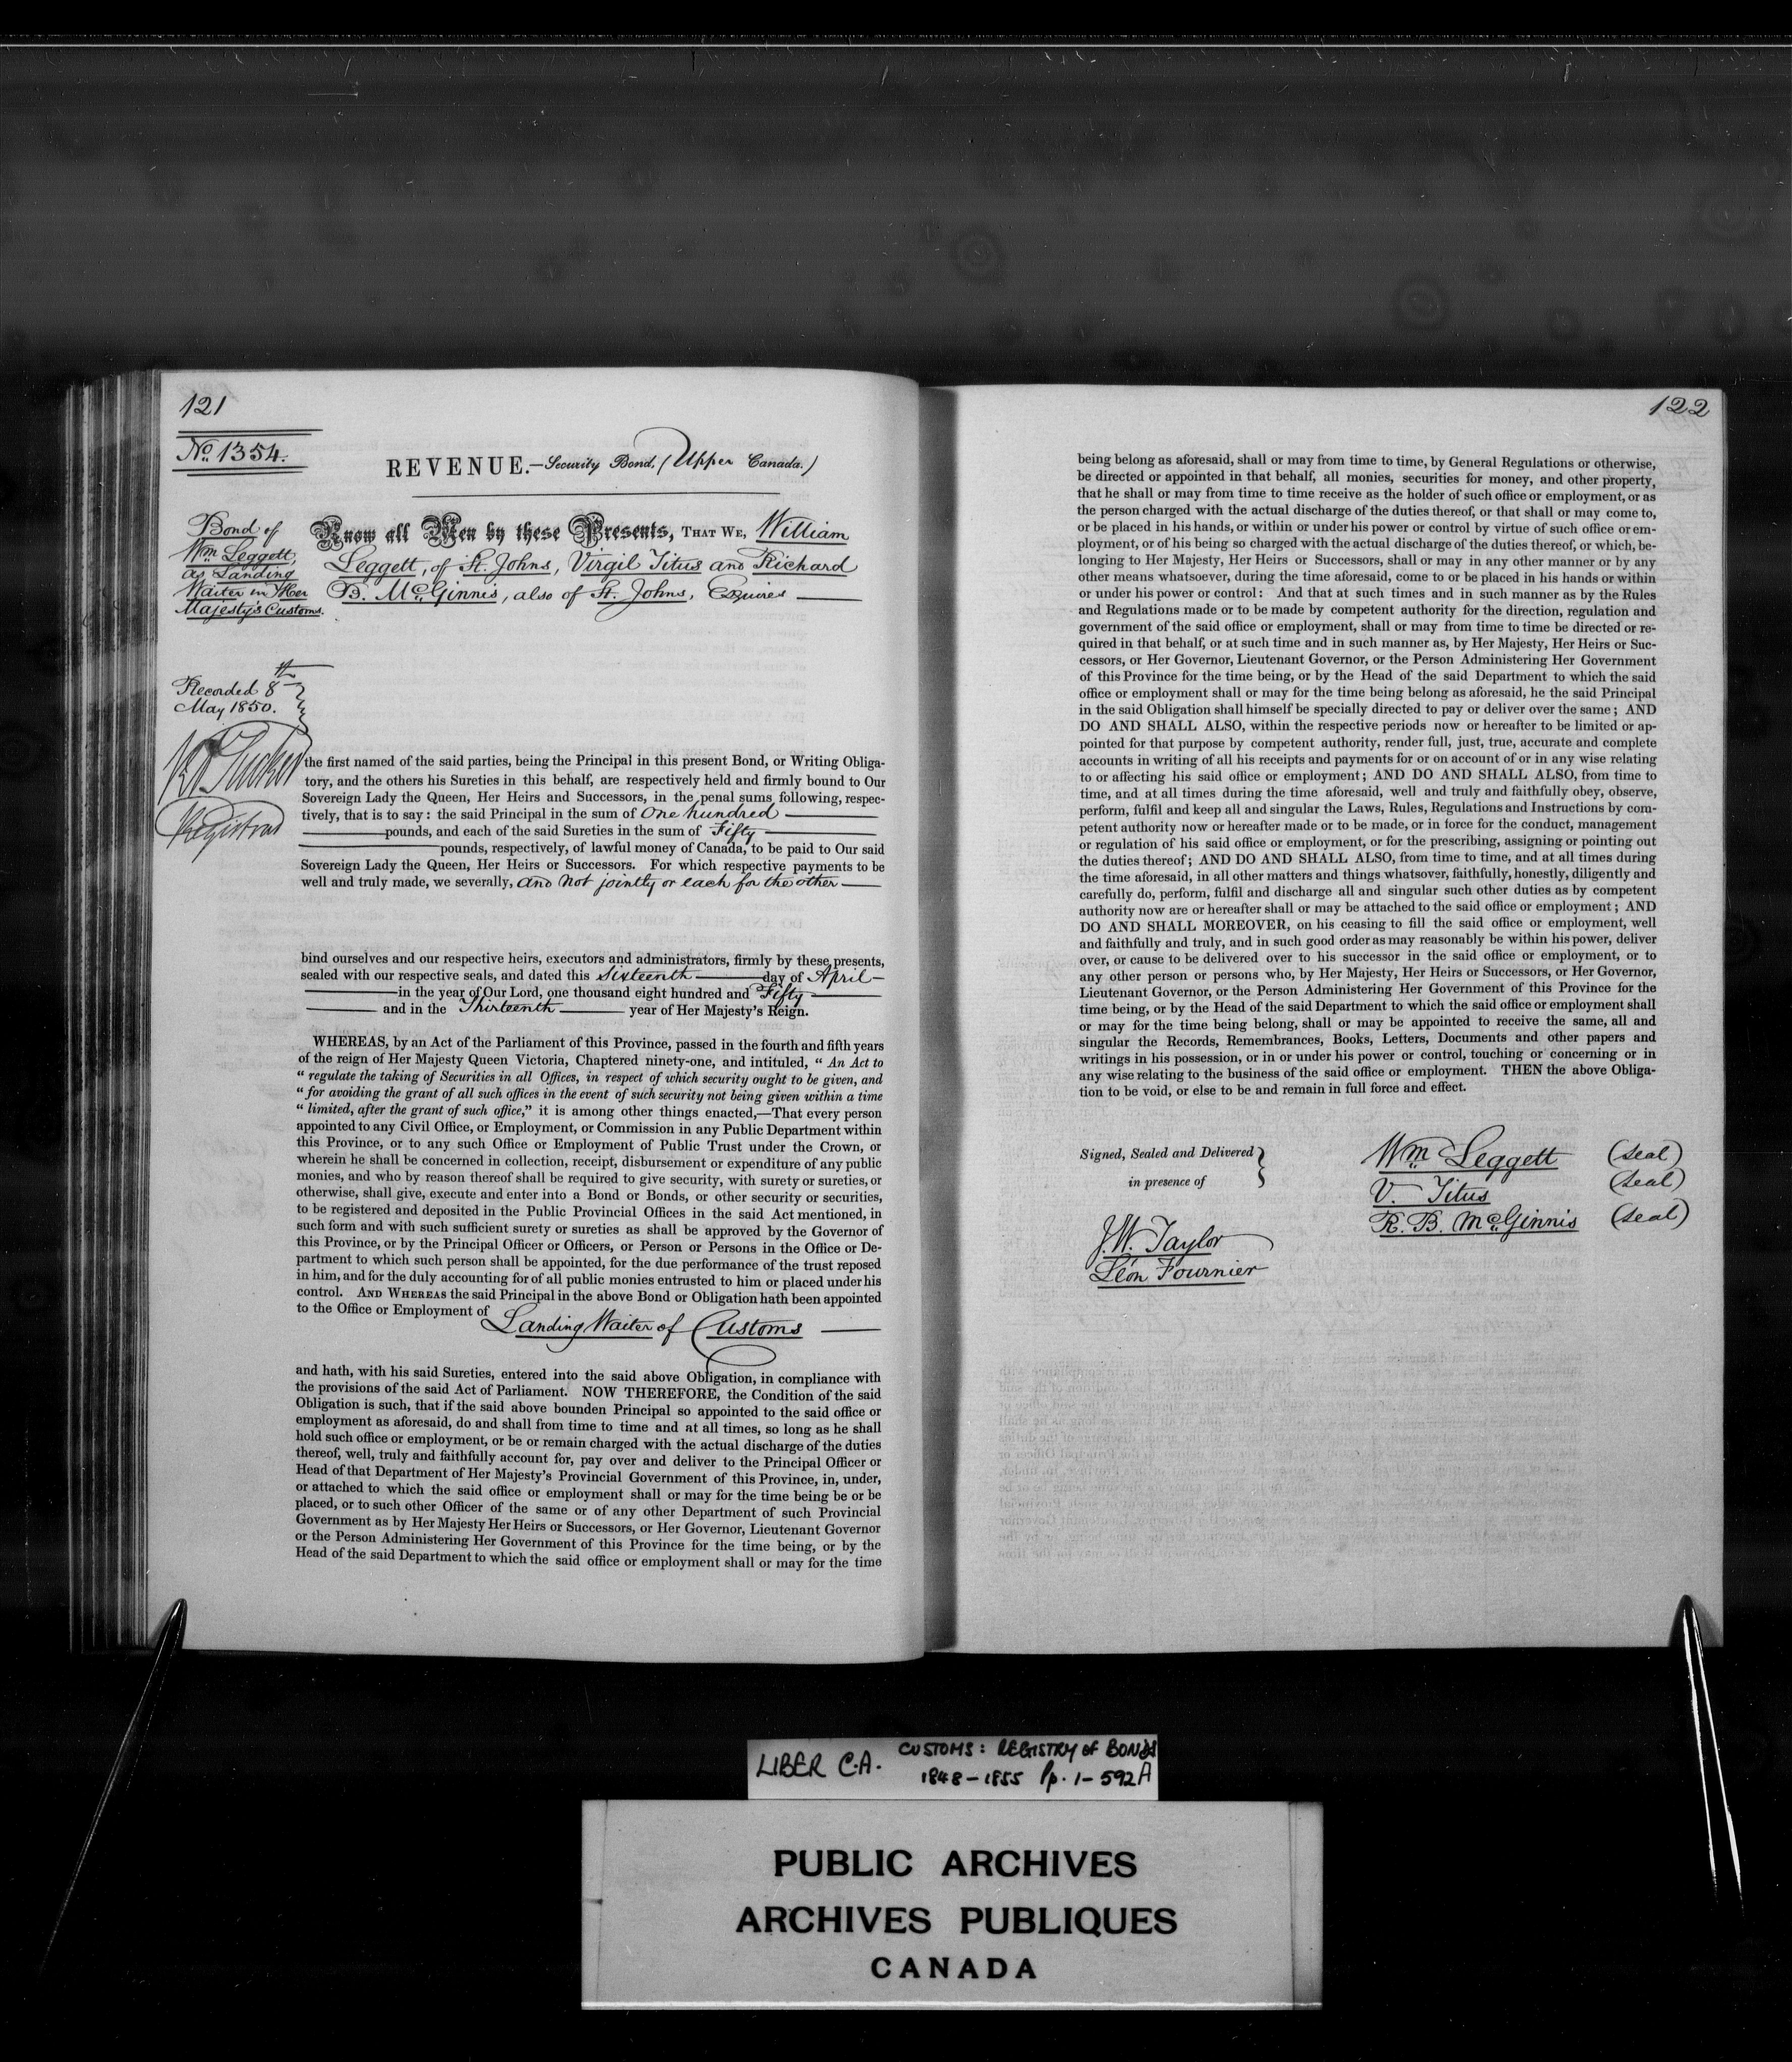 121
No. 1354.
REVENUE.—Security Bond. (Upper Canada.)
Bond of
Wm Leggett,
as Landing
Waiter in Her
Majesty's Customs.
Know all Men by these Presents, THAT WE, William
Leggett, of St. Johns, Virgil Titus and Richard
B. McGinnis, also of St. Johns, Esquires
Recorded 8th
May 1850.
R A Tucker
Registrar
the first named of the said parties, being the Principal in this present Bond, or Writing Obliga-
tory, and the others his Sureties in this behalf, are respectively held and firmly bound to Our
Sovereign Lady the Queen, Her Heirs and Successors, in the penal sums following, respec-
tively, that is to say: the said Principal in the sum of One hundred
pounds, and each of the said Sureties in the sum of Fifty
pounds, respectively, of lawful money of Canada, to be paid to Our said
Sovereign Lady the Queen, Her Heirs or Successors. For which respective payments to be
well and truly made, we severally, and not jointly or each for the other
bind ourselves and our respective heirs, executors and administrators, firmly by these presents,
sealed with our respective seals, and dated this Sixteenth day of April
in the year of Our Lord, one thousand eight hundred and Fifty
and in the Thirteenth year of Her Majesty's Reign.
WHEREAS, by an Act of the Parliament of this Province, passed in the fourth and fifth years
of the reign of Her Majesty Queen Victoria, Chaptered ninety-one, and intituled, " An Act to
" regulate the taking of Securities in all Offices, in respect of which security ought to be given, and
" for avoiding the grant of all such offices in the event of such security not being given within a time
" limited, after the grant of such office," it is among other things enacted,—That every person
appointed to any Civil Office, or Employment, or Commission in any Public Department within
this Province, or to any such Office or Employment of Public Trust under the Crown, or
wherein he shall be concerned in collection, receipt, disbursement or expenditure of any public
monies, and who by reason thereof shall be required to give security, with surety or sureties, or
otherwise, shall give, execute and enter into a Bond or Bonds, or other security or securities,
to be registered and deposited in the Public Provincial Offices in the said Act mentioned, in
such form and with such sufficient surety or sureties as shall be approved by the Governor of
this Province, or by the Principal Officer or Officers, or Person or Persons in the Office or De-
partment to which such person shall be appointed, for the due performance of the trust reposed
in him, and for the duly accounting for of all public monies entrusted to him or placed under his
control. AND WHEREAS the said Principal in the above Bond or Obligation hath been appointed
to the Office or Employment of Landing Waiter of Customs
and hath, with his said Sureties, entered into the said above Obligation, in compliance with
the provisions of the said Act of Parliament. NOW THEREFORE, the Condition of the said
Obligation is such, that if the said above bounden Principal so appointed to the said office or
employment as aforesaid, do and shall from time to time and at all times, so long as he shall
hold such office or employment, or be or remain charged with the actual discharge of the duties
thereof, well, truly and faithfully account for, pay over and deliver to the Principal Officer or
Head of that Department of Her Majesty's Provincial Government of this Province, in, under,
or attached to which the said office or employment shall or may for the time being be or be
placed, or to such other Officer of the same or of any other Department of such Provincial
Government as by Her Majesty Her Heirs or Successors, or Her Governor, Lieutenant Governor
or the Person Administering Her Government of this Province for the time being, or by the
Head of the said Department to which the said office or employment shall or may for the time
122
being belong as aforesaid, shall or may from time to time, by General Regulations or otherwise,
be directed or appointed in that behalf, all monies, securities for money, and other property,
that he shall or may from time to time receive as the holder of such office or employment, or as
the person charged with the actual discharge of the duties thereof, or that shall or may come to,
or be placed in his hands, or within or under his power or control by virtue of such office or em-
ployment, or of his being so charged with the actual discharge of the duties thereof, or which, be-
longing to Her Majesty, Her Heirs or Successors, shall or may in any other manner or by any
other means whatsoever, during the time aforesaid, come to or be placed in his hands or within
or under his power or control: And that at such times and in such manner as by the Rules
and Regulations made or to be made by competent authority for the direction, regulation and
government of the said office or employment, shall or may from time to time be directed or re-
quired in that behalf, or at such time and in such manner as, by Her Majesty, Her Heirs or Suc-
cessors, or Her Governor, Lieutenant Governor, or the Person Administering Her Government
of this Province for the time being, or by the Head of the said Department to which the said
office or employment shall or may for the time being belong as aforesaid, he the said Principal
in the said Obligation shall himself be specially directed to pay or deliver over the same; AND
DO AND SHALL ALSO, within the respective periods now or hereafter to be limited or ap-
pointed for that purpose by competent authority, render full, just, true, accurate and complete
accounts in writing of all his receipts and payments for or on account of or in any wise relating
to or affecting his said office or employment; AND DO AND SHALL ALSO, from time to
time, and at all times during the time aforesaid, well and truly and faithfully obey, observe,
perform, fulfil and keep all and singular the Laws, Rules, Regulations and Instructions by com-
petent authority now or hereafter made or to be made, or in force for the conduct, management
or regulation of his said office or employment, or for the prescribing, assigning or pointing out
the duties thereof; AND DO AND SHALL ALSO, from time to time, and at all times during
the time aforesaid, in all other matters and things whatsover, faithfully, honestly, diligently and
carefully do, perform, fulfil and discharge all and singular such other duties as by competent
authority now are or hereafter shall or may be attached to the said office or employment; AND
DO AND SHALL MOREOVER, on his ceasing to fill the said office or employment, well
and faithfully and truly, and in such good order as may reasonably be within his power, deliver
over, or cause to be delivered over to his successor in the said office or employment, or to
any other person or persons who, by Her Majesty, Her Heirs or Successors, or Her Governor,
Lieutenant Governor, or the Person Administering Her Government of this Province for the
time being, or by the Head of the said Department to which the said office or employment shall
or may for the time being belong, shall or may be appointed to receive the same, all and
singular the Records, Remembrances, Books, Letters, Documents and other papers and
writings in his possession, or in or under his power or control, touching or concerning or in
any wise relating to the business of the said office or employment. THEN the above Obliga-
tion to be void, or else to be and remain in full force and effect.
Signed, Sealed and Delivered
in presence of
Wm Leggett (seal)
V. Titus (seal)
R. B. McGinnis (seal)
J. W. Taylor
Léon Fournier
LIBER C.A. CUSTOMS: REGISTRY OF BONDS
1848-1855 Pp. 1-592A
PUBLIC ARCHIVES
ARCHIVES PUBLIQUES
CANADA